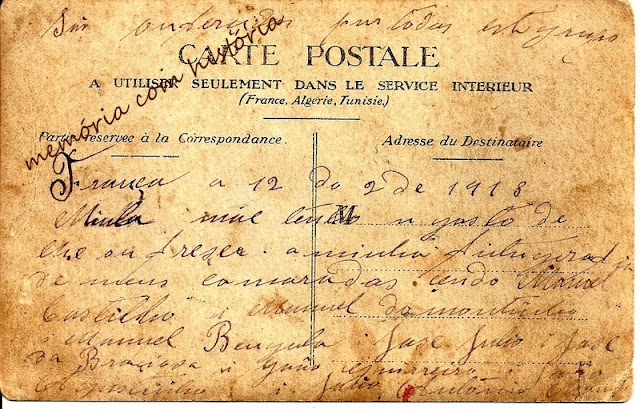 por todas este grupo
CARTE POSTALE
A UTILISER SEULEMENT DANS LE SERVICE INTERIEUR
(France, Algerie, Tunisie.)
memória com história
Partie réservée à la Correspondance.
Adresse du Destinataire
França a 12 do 2 de 1918
Minha mãe tendo o gosto de
a minha
de meus camaradas sendo Manuel
Castilho i Manuel
i Manuel Bengala i José Luis i José
da Graciosa i João
i Julio António